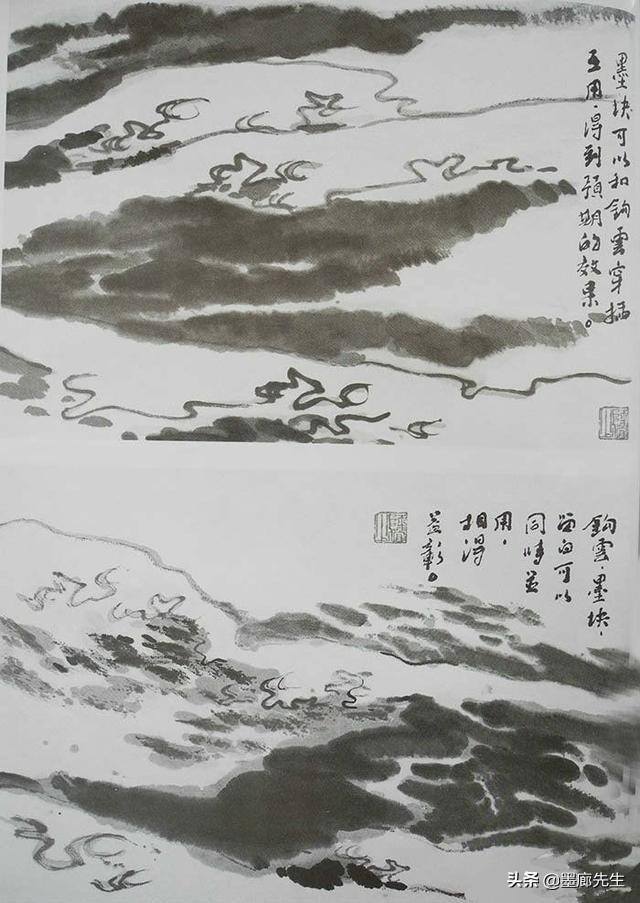 墨块可以和鈎雲穿插
互用，得到预期的效果。
鈎雲、墨块、
留白可以
同時並
用，
相得
益彰。
头条 @墨廊先生